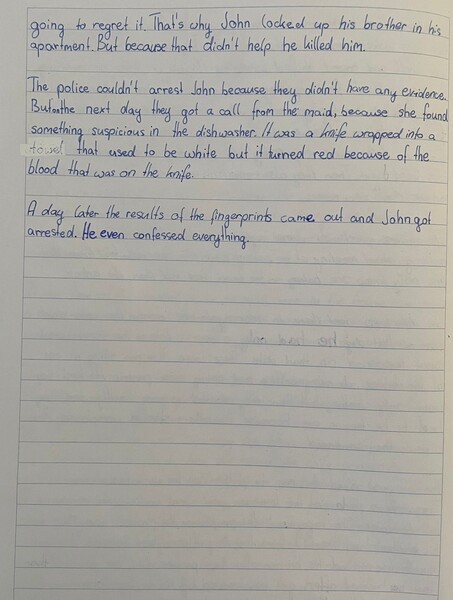 going to regret it. That's why John locked up his brother in his
apartment. But because that didn't help he killed him.
The police couldn't arrest John because they didn't have any evidence.
But the next day they got a call from the maid, because she found
something suspicious in the dishwasher. It was a knife wrapped into a
towel that used to be white but it turned red because of the
blood that was on the knife.
A day later the results of the fingerprints came out and John got
arrested. He even confessed everything.